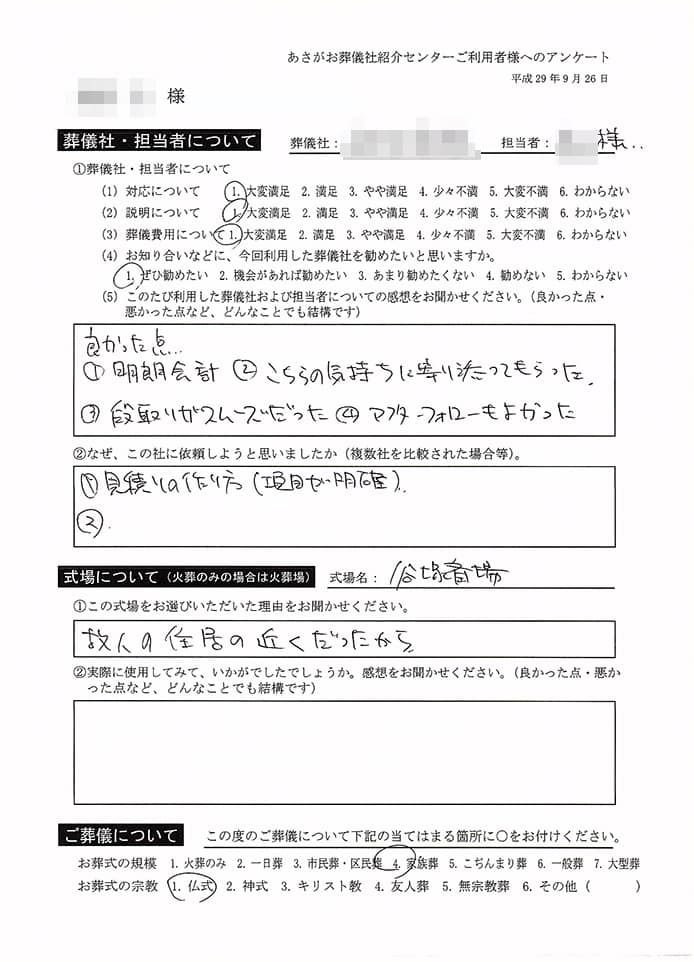 あさがお葬儀社紹介センターご利用者様へのアンケート
平成29年9月26日
様
葬儀社・担当者について 葬儀社： 担当者： 様
①葬儀社・担当者について
(1) 対応について 1. 大変満足 2. 満足 3. やや満足 4. 少々不満 5. 大変不満 6. わからない
(2) 説明について 1. 大変満足 2. 満足 3. やや満足 4. 少々不満 5. 大変不満 6. わからない
(3) 葬儀費用について 1. 大変満足 2. 満足 3. やや満足 4. 少々不満 5. 大変不満 6. わからない
(4) お知り合いなどに、今回利用した葬儀社を勧めたいと思いますか。
1. ぜひ勧めたい 2. 機会があれば勧めたい 3. あまり勧めたくない 4. 勧めない 5. わからない
(5) このたび利用した葬儀社および担当者についての感想をお聞かせください。（良かった点・
悪かった点など、どんなことでも結構です）
良かった点…
① 明朗会計 ② こちらの気持ちに寄り添ってもらった。
③ 段取りがスムーズだった ④ アフターフォローもよかった
②なぜ、この社に依頼しようと思いましたか（複数社を比較された場合等）。
① 見積りの作り方（項目が明確）.
②.
式場について（火葬のみの場合は火葬場） 式場名： 谷塚斎場
①この式場をお選びいただいた理由をお聞かせください。
故人の住居の近くだったから
②実際に使用してみて、いかがでしたでしょうか。感想をお聞かせください。（良かった点・悪か
った点など、どんなことでも結構です）
ご葬儀について この度のご葬儀について下記の当てはまる箇所に○をお付けください。
お葬式の規模 1. 火葬のみ 2. 一日葬 3. 市民葬・区民葬 4. 家族葬 5. こぢんまり葬 6. 一般葬 7. 大型葬
お葬式の宗教 1. 仏式 2. 神式 3. キリスト教 4. 友人葬 5. 無宗教葬 6. その他（ ）